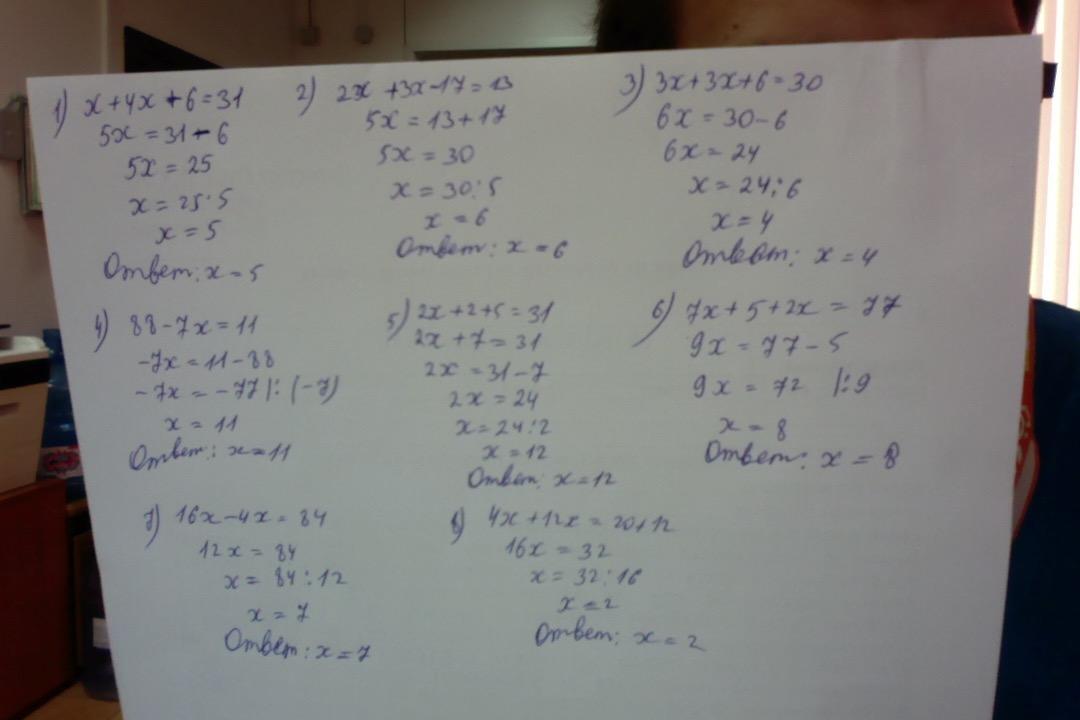 1) x+4x+6=31
5x=31-6
5x=25
x=25:5
x=5
Ответ: x=5
2) 2x+3x-17=13
5x=13+17
5x=30
x=30:5
x=6
Ответ: x=6
3) 3x+3x+6=30
6x=30-6
6x=24
x=24:6
x=4
Ответ: x=4
4) 88-7x=11
-7x=11-88
-7x=-77|:(-7)
x=11
Ответ: x=11
5) 2x+2+5=31
2x+7=31
2x=31-7
2x=24
x=24:2
x=12
Ответ: x=12
6) 7x+5+2x=77
9x=77-5
9x=72 |:9
x=8
Ответ: x=8
7) 16x-4x=84
12x=84
x=84:12
x=7
Ответ: x=7
8) 4x+12x=20+12
16x=32
x=32:16
x=2
Ответ: x=2